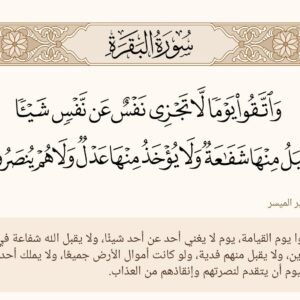 سُورَةُ البَقَرَةِ
وَٱتَّقُوا۟ يَوْمًا لَّا تَجْزِى نَفْسٌ عَن نَّفْسٍ شَيْـًٔا
مِنْهَا شَفَٰعَةٌ وَلَا يُؤْخَذُ مِنْهَا عَدْلٌ وَلَا هُمْ
الميسر
يوم القيامة، يوم لا يغني أحد عن أحد شيئًا، ولا يقبل الله شفاعة في
ولا يقبل منهم فدية، ولو كانت أموال الأرض جميعًا، ولا يملك أحد
أن يتقدم لنصرتهم وإنقاذهم من العذاب.